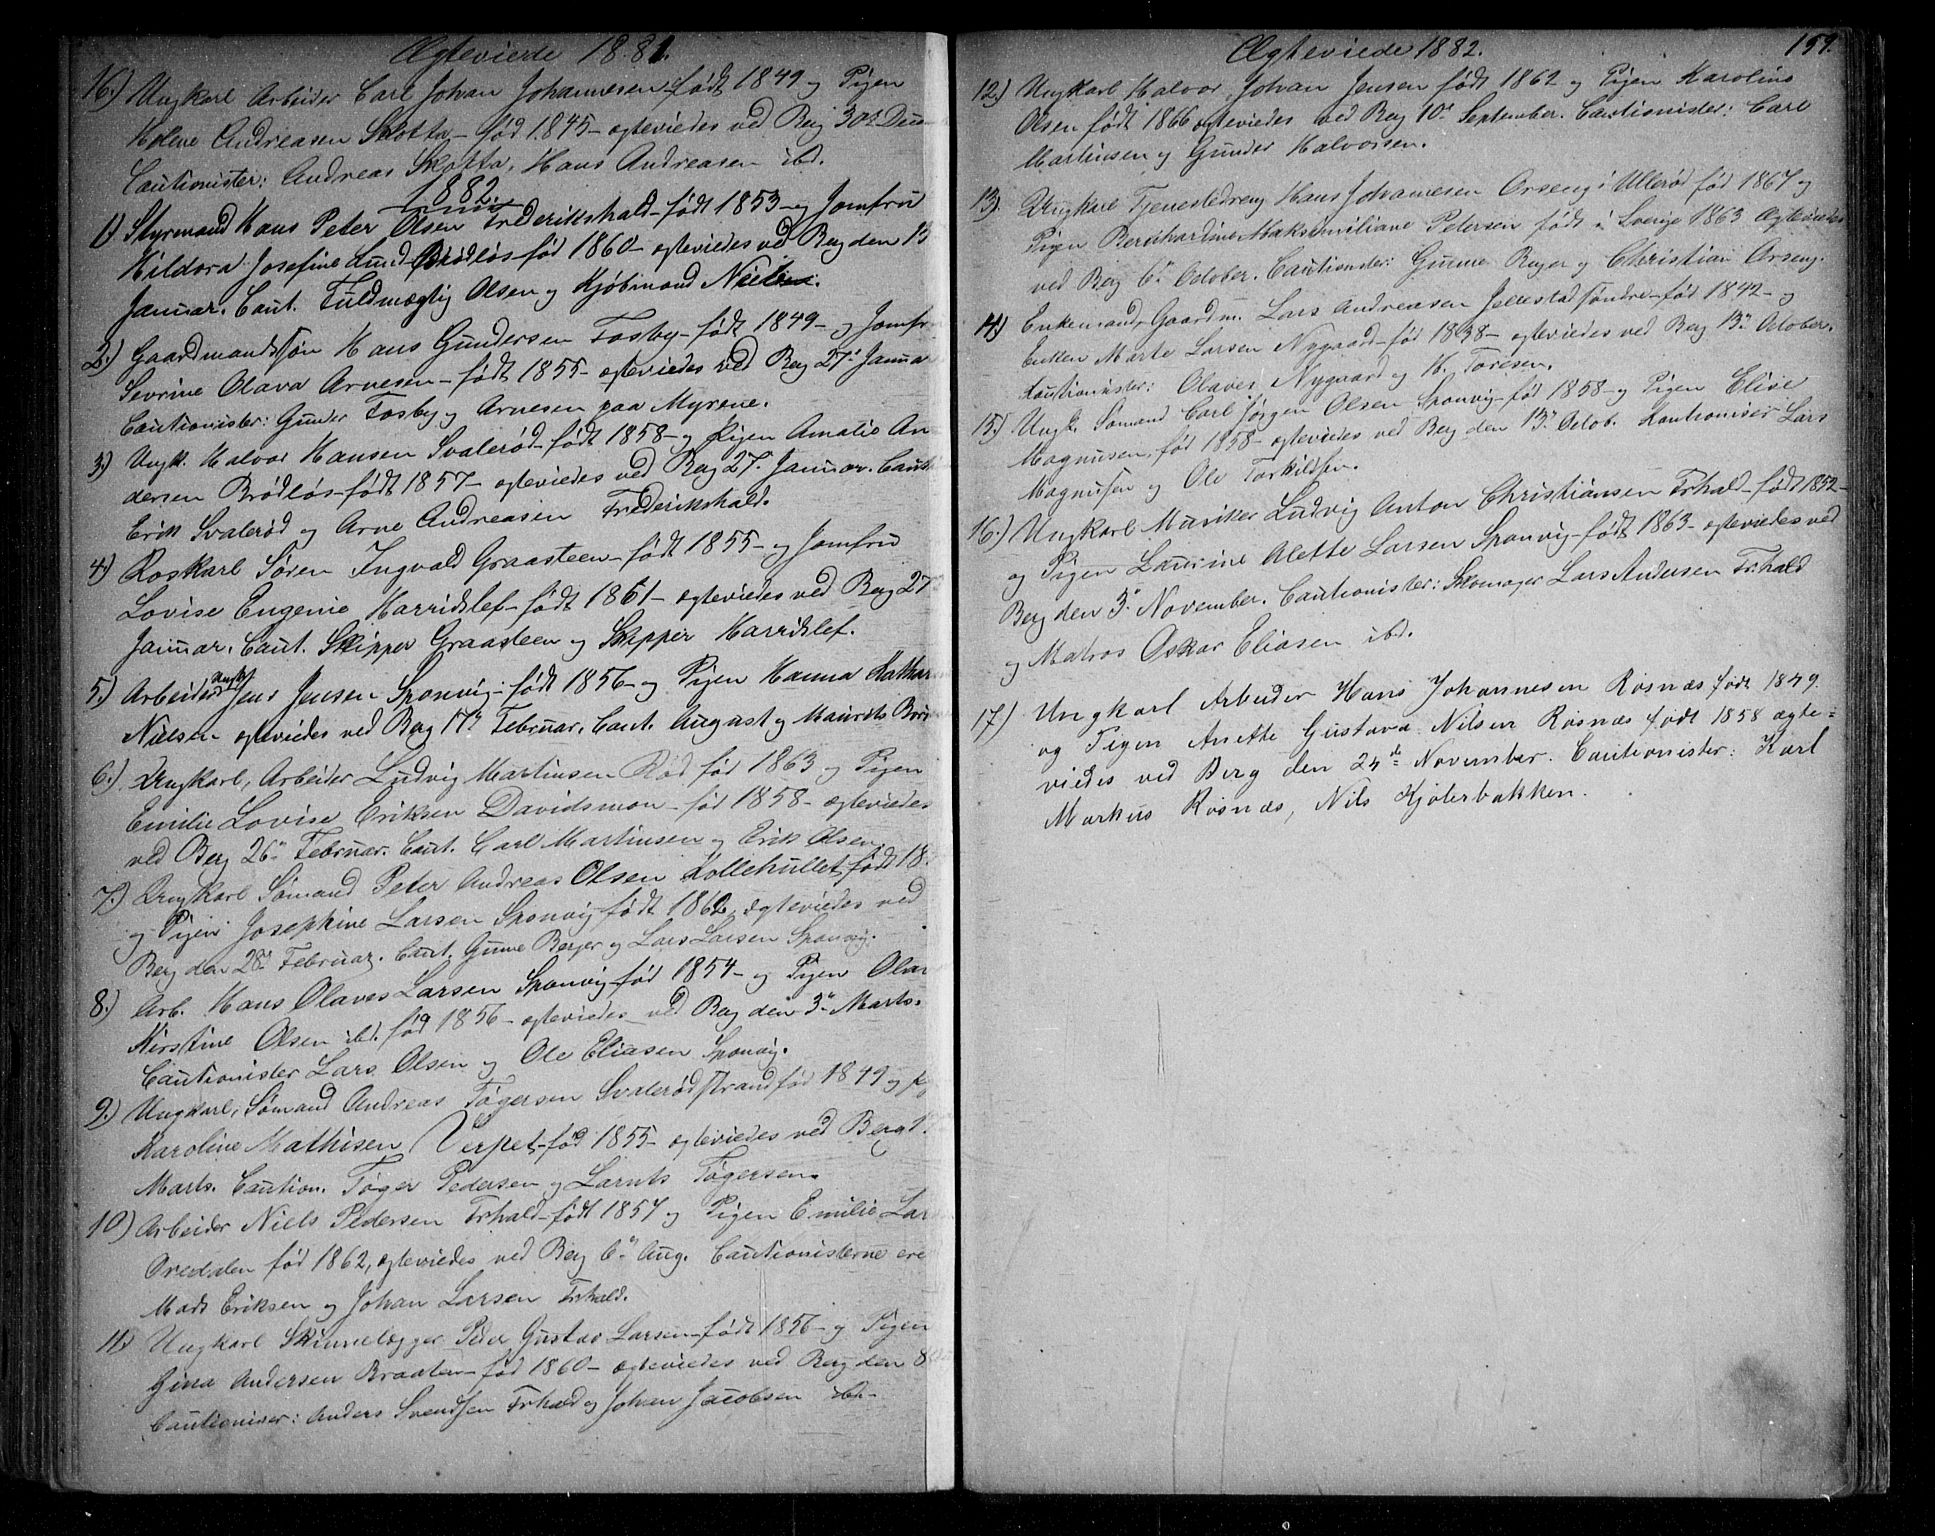 Ægteviede 1881.
16.) Ungkarl Arbeider Carl Johan Johannesen født 1849 og Pigen
Helene Andreasen Skotta – fød 1845 – egteviedes ved Berg 30te Dec
Cautionister: Andreas Skotta, Hans Andreasen ibd.
1882
1) Styrmand Hans Peter Olsen Frederikshald – født 1853 – og Jomfru
Hildora Josefine Lund Brødløs fød 1860 – egteviedes ved Berg den 13
Januar. Caut. Fuldmægtig Olsen og Kjøbmand Nielsen.
2.) Gaardmandssøn Hans Gundersen Fosby – født 1849 – og Jomfr
Sevrine Olava Arnesen – født 1855 – egteviedes ved Berg 27de Janua
Cautionister: Gunder Fosby og Arnesen paa Myrene.
3.) Ungk. Halvor Hansen Svalerød – født 1858 – og Pigen Amalie An
dersen Brødløs – født 1857 – egteviedes ved Berg 27. Januar. Caut
Erik Svalerød og Arne Andreasen Frederikshald.
4) Roskarl Søren Ingvald Graasteen – født 1855 – og Jomfru
Lovise Eugenie Harridslef – født 1861 – egteviedes ved Berg 27
Januar. Caut. Skipper Graasteen og Skipper Harridslef.
5.) Arbeider Ungk. Jens Jensen Sponvig – født 1856 – og Pigen Hanna Kathar
Nielsen – egteviedes ved Berg 17de Februar. Caut. August og Maurits
6.) Ungkarl, Arbeider Ludvig Martinsen Rød fød 1863 og Pigen
Emilie Lovise Eriksen Davidsmon – fød 1858 – egteviedes
ved Berg 26de Februar. Caut. Carl Martinsen og Erik Olsen
7.) Ungkarl Sømand Peter Andreas Olsen Kollehullet født 18
og Pigen Josephine Larsen Sponvig født 1862, egteviedes ved
Berg den 28de Februar. Caut. Gunne Berger og Lars Larsen Sponvig.
8.) Arb. Hans Olaves Larsen Sponvig – fød 1854 – og Pigen Olav
Kirstine Olsen ibd. fød 1856 – egteviedes ved Berg den 3de Marts.
Cautionister Lars Olsen og Ole Eliasen Sponvig.
9.) Ungkarl, Sømand Andreas Tøgersen Svalerødstrand fød 1849 og
Karoline Mathisen Verpet – fød 1855 – egteviedes ved Berg
Marts. Caution. Tøger Pedersen og Larnts Tøgersen.
10) Arbeider Niels Pedersen Frhald – født 1857 og Pigen Emilie Lar
Oredalen fød 1862, egteviedes ved Berg 6te Aug. Cautionisterne ere
Mads Eriksen og Johan Larsen Frhald.
11.) Ungkarl Skinnelægger Peder Gustav Larsen – født 1856 – og Pigen
Gina Andersen Braaten – fød 1860 – egteviedes ved Berg den 8
Cautioniser: Anders Svendsen Frhald og Johan Jacobsen ibd –
Ægteviede 1882.
159.
12.) Ungkarl Halvor Johan Jensen født 1862 og Pigen Karoline
Olsen født 1866 egteviedes ved Berg 10de September. Cautionister: Carl
Martinsen og Gunder Halvorsen.
13.) Ungkarl Tjenestedreng Hans Johannesen Orseng i Ullerød fød 1867 og
Pigen Bernhardine Maksimiliane Petersen født i Sverige 1863 Egteviedes
ved Berg 6te October. Cautionister: Gunne Berger og Christian Orseng.
14.) Enkemand, Gaardm. Lars Andreasen Jellestad søndre – fød 1842 – og
Enken Marte Larsen Nygaard – fød 1838 – egteviedes ved Berg 13de October.
Kautionister: Olaves Nygaard og H. Toresen.
15.) Ungk. Sømand Carl Jørgen Olsen Sponvig – fød 1858 – og Pigen Elise
Magnusen, fød 1858 – egteviedes ved Berg den 13de Octob. Kautioniser Lars
Magnusen og Ole Torkildsen.
16.) Ungkarl Musiker Ludvig Anton Christiansen Frhald – født 1852 –
og Pigen Laurine Alette Larsen Sponvig – født 1863 – egteviedes ved
Berg den 3de November. Cautionister: Skomager Lars Andersen Frhald
og Matros Oskar Eliasen ibd.
17) Ungkarl Arbeider Hans Johannesen Rosnæs født 1849.
og Pigen Anette Gustava Nilsen Rosnæs født 1858 ægte=
viedes ved Berg den 24de November. Cautionister: Karl
Markus Rosnæs, Nils Kjølerbakken.